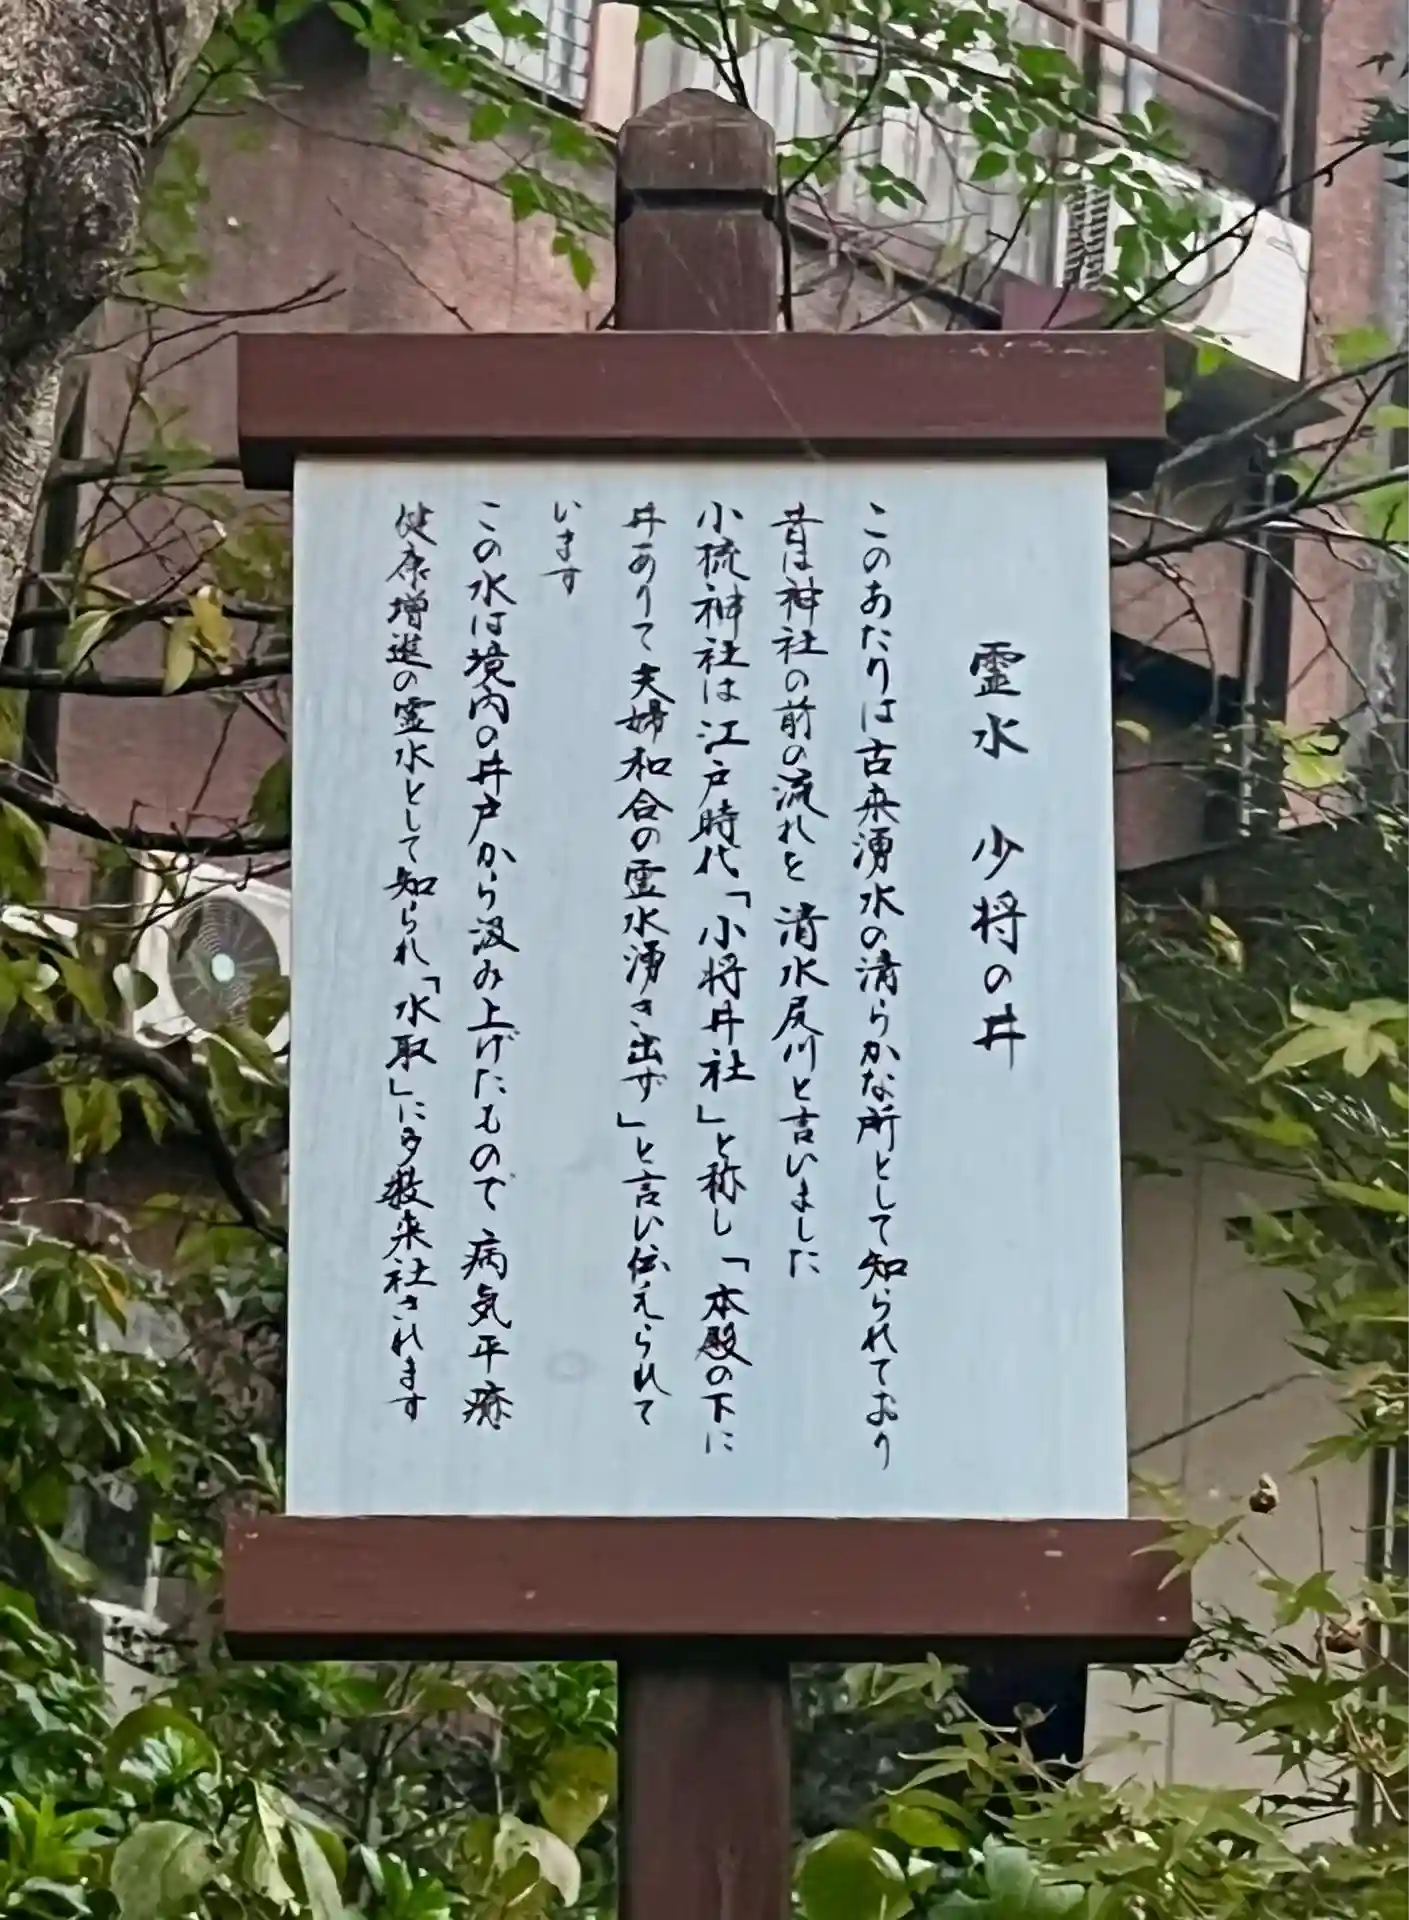 霊水 少将の井
このあたりは古来湧水の清らかな所として知られており
昔は神社の前の流れを清水尻川と言いました
小梳神社は江戸時代「小将井社」と称し「本殿の下に
井ありて夫婦和合の霊水湧き出ず」と言い伝えられて
います
この水は境内の井戸から汲み上げたもので病気平癒
健康増進の霊水として知られ「水取」に多数来社されます